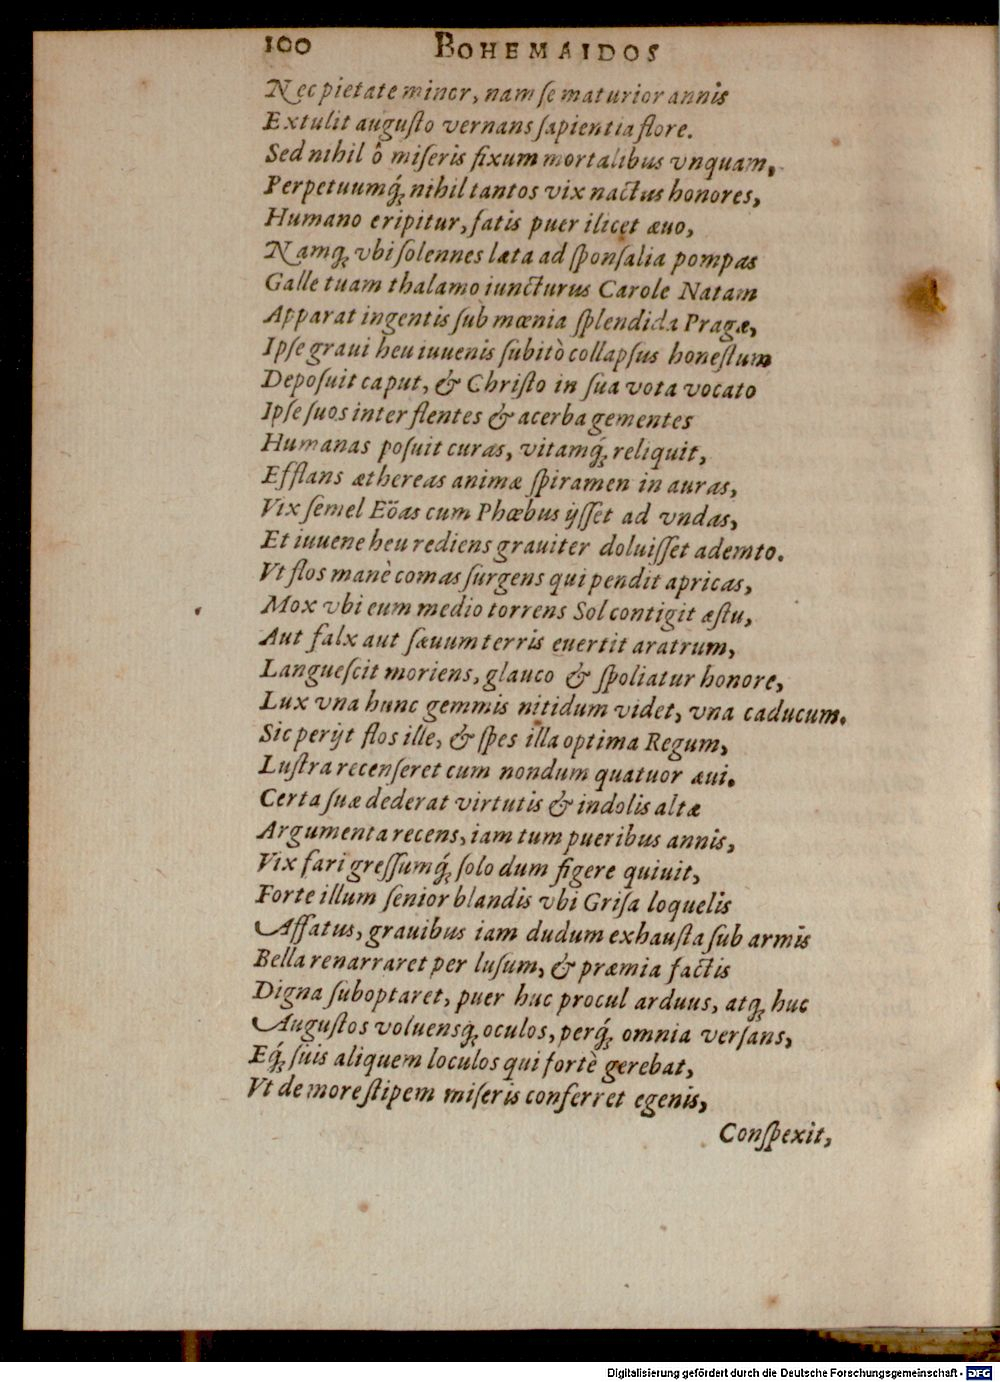 100 BOHEMAIDOS
Nec pietate minor, nam ſe maturior annis
Extulit auguſto vernans ſapientia flore.
Sed nihil ô miſeris fixum mortalibus vnquam,
Perpetuumq́; nihil tantos vix nactus honores,
Humano eripitur, fatis puer ilicet æuo,
Namq; vbi ſolennes læta ad ſponſalia pompas
Galle tuam thalamo iuncturus Carole Natam
Apparat ingentis ſub mœnia ſplendida Pragæ,
Ipſe graui heu iuuenis ſubitò collapſus honeſtum
Depoſuit caput, & Chriſto in ſua vota vocato
Ipſe ſuos inter flentes & acerba gementes
Humanas poſuit curas, vitamq́; reliquit,
Efflans æthereas animæ ſpiramen in auras,
Vix ſemel Eöas cum Phœbus ijſſet ad vndas,
Et iuuene heu rediens grauiter doluiſſet ademto.
Vt flos manè comas ſurgens qui pendit apricas,
Mox vbi eum medio torrens Sol contigit æſtu,
Aut falx aut ſæuum terris euertit aratrum,
Langueſcit moriens, glauco & ſpoliatur honore,
Lux vna hunc gemmis nitidum videt, vna caducum.
Sic perijt flos ille, & ſpes illa optima Regum,
Luſtra recenſeret cum nondum quatuor æui.
Certa ſuæ dederat virtutis & indolis altæ
Argumenta recens, iam tum pueribus annis,
Vix fari greſſumq́; ſolo dum figere quiuit,
Forte illum ſenior blandis vbi Griſa loquelis
Affatus, grauibus iam dudum exhauſta ſub armis
Bella renarraret per luſum, & præmia factis
Digna ſuboptaret, puer huc procul arduus, atq; huc
Auguſtos voluensq; oculos, perq́; omnia verſans,
Eq́; ſuis aliquem loculos qui fortè gerebat,
Vt de more ſtipem miſeris conferret egenis,
Conſpexit,
Digitalisierung gefördert durch die Deutsche Forschungsgemeinschaft - DFG